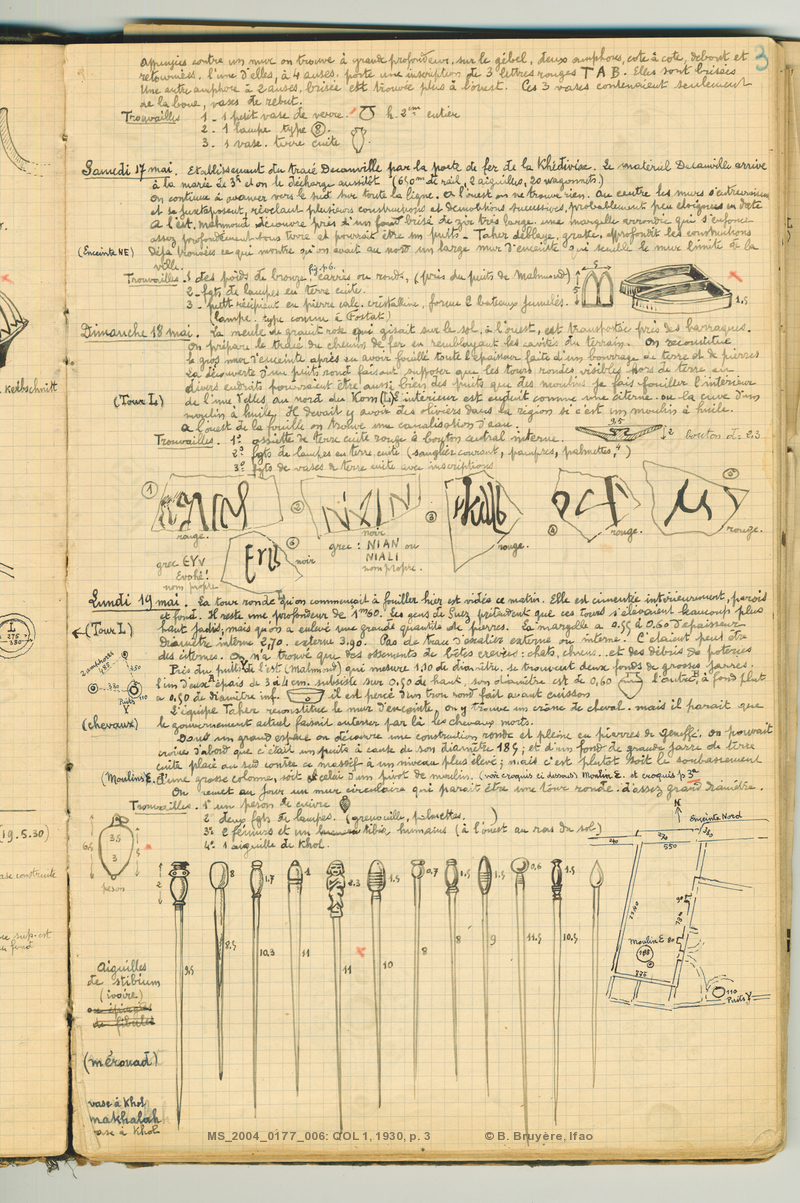 3
appuyées contre un mur on trouve à grande profondeur, sur le gébel, deux amphores, côte à côte, debout et
retournées. l'une d'elles, à 4 anses, porte une inscription de 3 lettres rouges T A B. Elles sont brisées
Une autre amphore à 2 anses, brisée est trouvée plus à l'ouest. Ces 3 vases contenaient seulement
de la boue, vases de rebut.
Trouvailles 1 - 1 petit vase de verre. h. 2 cm entier
2 - 1 lampe type 8.
3 - 1 vase terre cuite
Samedi 17 mai. Etablissement du tracé Decauville par la porte de fer de la Khédivise. Le matériel Decauville arrive
à la marée le 3e et on le décharge aussitôt (650 m de rail, 2 aiguilles, 20 wagonnets)
On continue à avancer vers le sud sur toute la ligne. A l'ouest on ne trouve rien. Au centre les murs s'entrecroisent
et se juxtaposent, révélant plusieurs constructions et démolitions successives, probablement peu éloignées en date
A l'est, Mahmoud découvre près d'un fond brisé de zir très large une margelle arrondie qui s'enfonce
assez profondément sous terre et pourrait être un puits - Taher déblaye, gratte, approfondit les constructions
(Enceinte NE) déjà trouvées ce qui montre qu'on avait au nord un large mur d'enceinte qui semble le mur limite de la
ville.
fig. p6.
Trouvailles. 1 des poids de bronze, carrés ou ronds, (près du puits de Mahmoud)
2 - fgts de lampes en terre cuite.
3 - petit récipient en pierre calc. cristalline, forme 2 bateaux jumelés.
(lampe. type connu à Fostat)
5
5
1,5
Dimanche 18 mai. La meule de granit rose qui gisait sur le sol, à l'ouest, est transportée près des baraques.
On prépare le tracé du chemin de fer en remblayant les cavités du terrain. On reconstitue
le gros mur d'enceinte après en avoir fouillé toute l'épaisseur faite d'un bourrage de terre et de pierres
La découverte d'un puits rond faisant supposer que les tours rondes visibles hors de terre en
divers endroits pourraient être aussi bien des puits que des moulins je fais fouiller l'intérieur
(Tour L) de l'une d'elles, au nord du Kom (L) l'intérieur est enduit comme une citerne ou la cuve d'un
moulin à huile. Il devait y avoir des oliviers dans la région si c'est un moulin à huile.
A l'ouest de la fouille on trouve une canalisation d'eau.
Trouvailles. 1° assiette de terre cuite rouge à bouton central interne. 9,5 2 bouton d. 2,3
2° fgts de lampes en terre cuite (sanglier courant, pampres, palmettes, 4)
3° fgts de vases de terre cuite avec inscriptions
1 2 3 4 5
rouge. noir rouge. rouge. rouge.
grec : NIAN ou
NIALI
nom propre.
6 noir
grec ΕΥν
Evohé!
nom propre
Lundi 19 mai. La tour ronde qu'on commençait à fouiller hier est vidée ce matin. Elle est cimentée intérieurement, parois
et fond. Il reste une profondeur de 1m60. Les gens de Suez prétendent que ces tours s'élevaient beaucoup plus
(Tour L) haut jadis, mais qu'on a enlevé une grande quantité de pierres. La margelle a 0.55 à 0.60 d'épaisseur
Diamètre interne 2,70. externe 3,90. Pas de trace d'escalier externe ou interne. C'étaient peut être
des citernes. On n'a trouvé que des ossements de bêtes crevées : chats, chiens.. et des débris de poteries
Près du puits de l'est (Mahmoud) qui mesure 1,10 de diamètre, se trouvent deux fonds de grosses jarres.
l'un d'eux épais de 3 à 4 cm. subsiste sur 0.50 de haut, son diamètre est de 0,60 l'autre, à fond plat
a 0.50 de diamètre inf. il est percé d'un trou rond fait avant cuisson
L'équipe Taher reconstitue le mur d'enceinte, on y trouve un crâne de cheval. mais il paraît que
(chevaux) le gouvernement actuel faisait enterrer par là les chevaux morts.
Dans un grand espace on découvre une construction ronde et pleine en pierres de Geneffé. On pouvait
croire d'abord que c'était un puits à cause de son diamètre 185; et d'un fond de grande jarre de terre
cuite placé au sud contre ce massif à un niveau plus élevé; mais c'est plutôt soit le soubassement
(Moulin E. d'une grosse colonne, soit celui d'un pivot de moulin. (voir croquis ci dessous) Moulin E. et croquis p 3a
On remet au jour un mur circulaire qui paraît être une tour ronde d'assez grand diamètre.
Trouvailles. 1° un peson de cuivre
2° deux fgts de lampes. (grenouille, palmettes. )
3° 2 fémurs et un tibia humains (à l'ouest au ras du sol)
4° 1 aiguille de Khol.
6,5 3,5
3
peson
N
Enceinte Nord
550
Moulin E.
185
775
110
Puits Y
2 8 1,7 1 2,3 1,5 0,7 1,5 1,5 0,6 1,5
9,5 8,5 10,3 11 11 10 8 8 9 11.5 10,5
Aiguilles
de stibium
(ivoire)
ou épingles
de fibules
(méroûad)
vase à Khol
makhalah
vase à Khol
MS_2004_0177_006: QOL 1, 1930, p. 3 © B. Bruyère, Ifao
Kerbschnitt
L
275
390
(19.5.30)